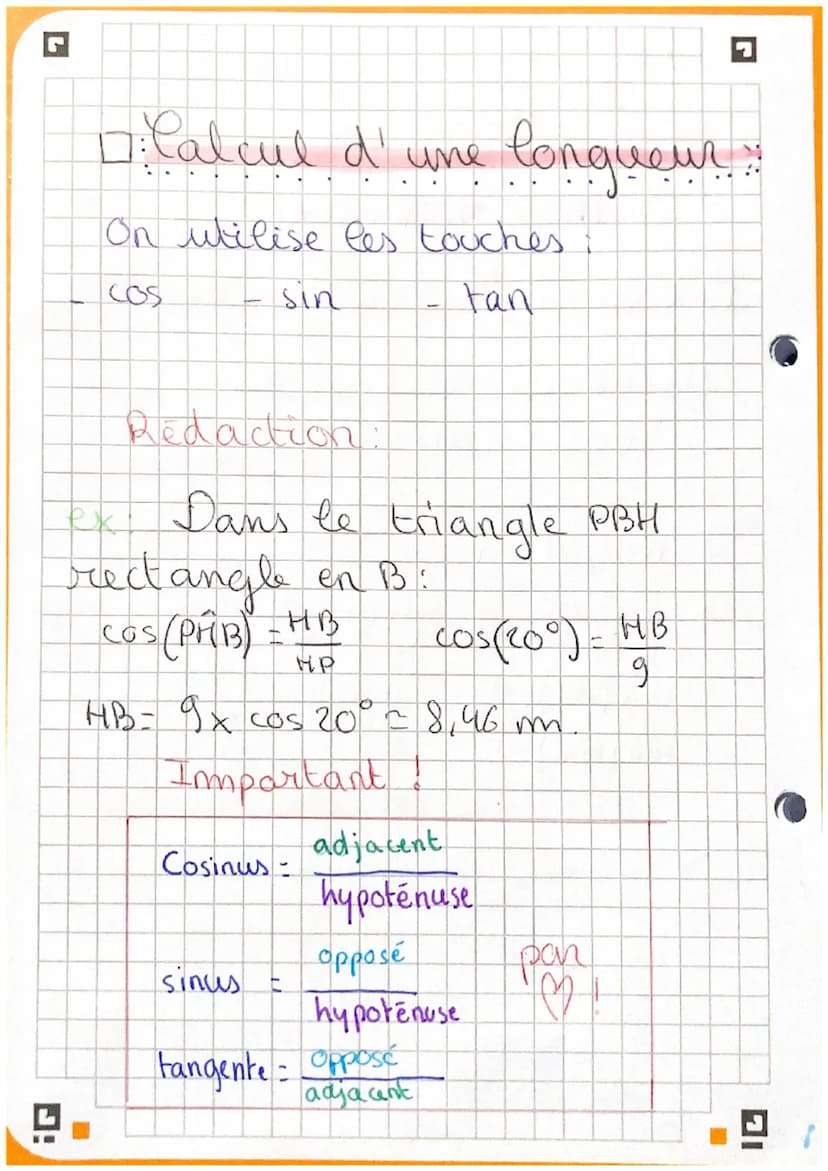 Calcul d'une longueur :
On utilise les touches :
- cos - sin - tan
Rédaction :
ex : Dans le triangle PBH
rectangle en B :
cos(PĤB) = HB/HP cos(20°) = HB/9
HB = 9 x cos 20° ≃ 8,46 m.
Important !
Cosinus = adjacent/hypoténuse
sinus = opposé/hypoténuse
par ♡ !
tangente = opposé/adjacent